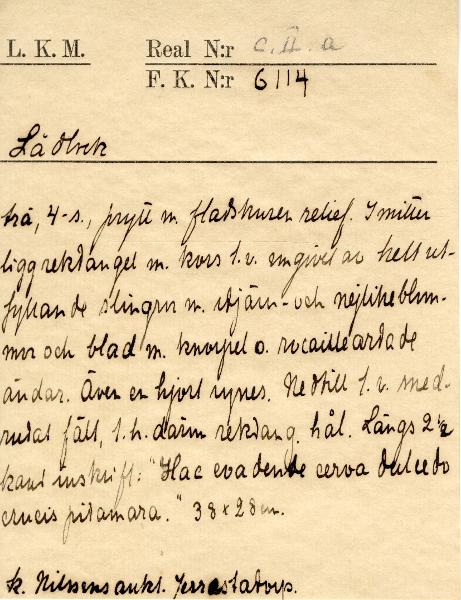 L. K. M. Real N:r C. II. a
F. K. N:r 6114
Lådlock
trä, 4-s., prytt m. fladskuren relief. I mitten
ligg rektangel m. kors t.v. omgivet av helt ut-
fyllande slingor m. stjärn- och nejlikeblom-
mor och blad m. knorpel o. rocailleartade
ändar. Även en hjort synes. Nedtill t.v.
rutat fält, t.h. därom rektang. hål. Längs 2 1/2
kant inskrift: "Hac evadente cerva dulcedo
crucis pitamara." 38 x 28 cm.
k. Nilssons aukt. Jerrestadorp.